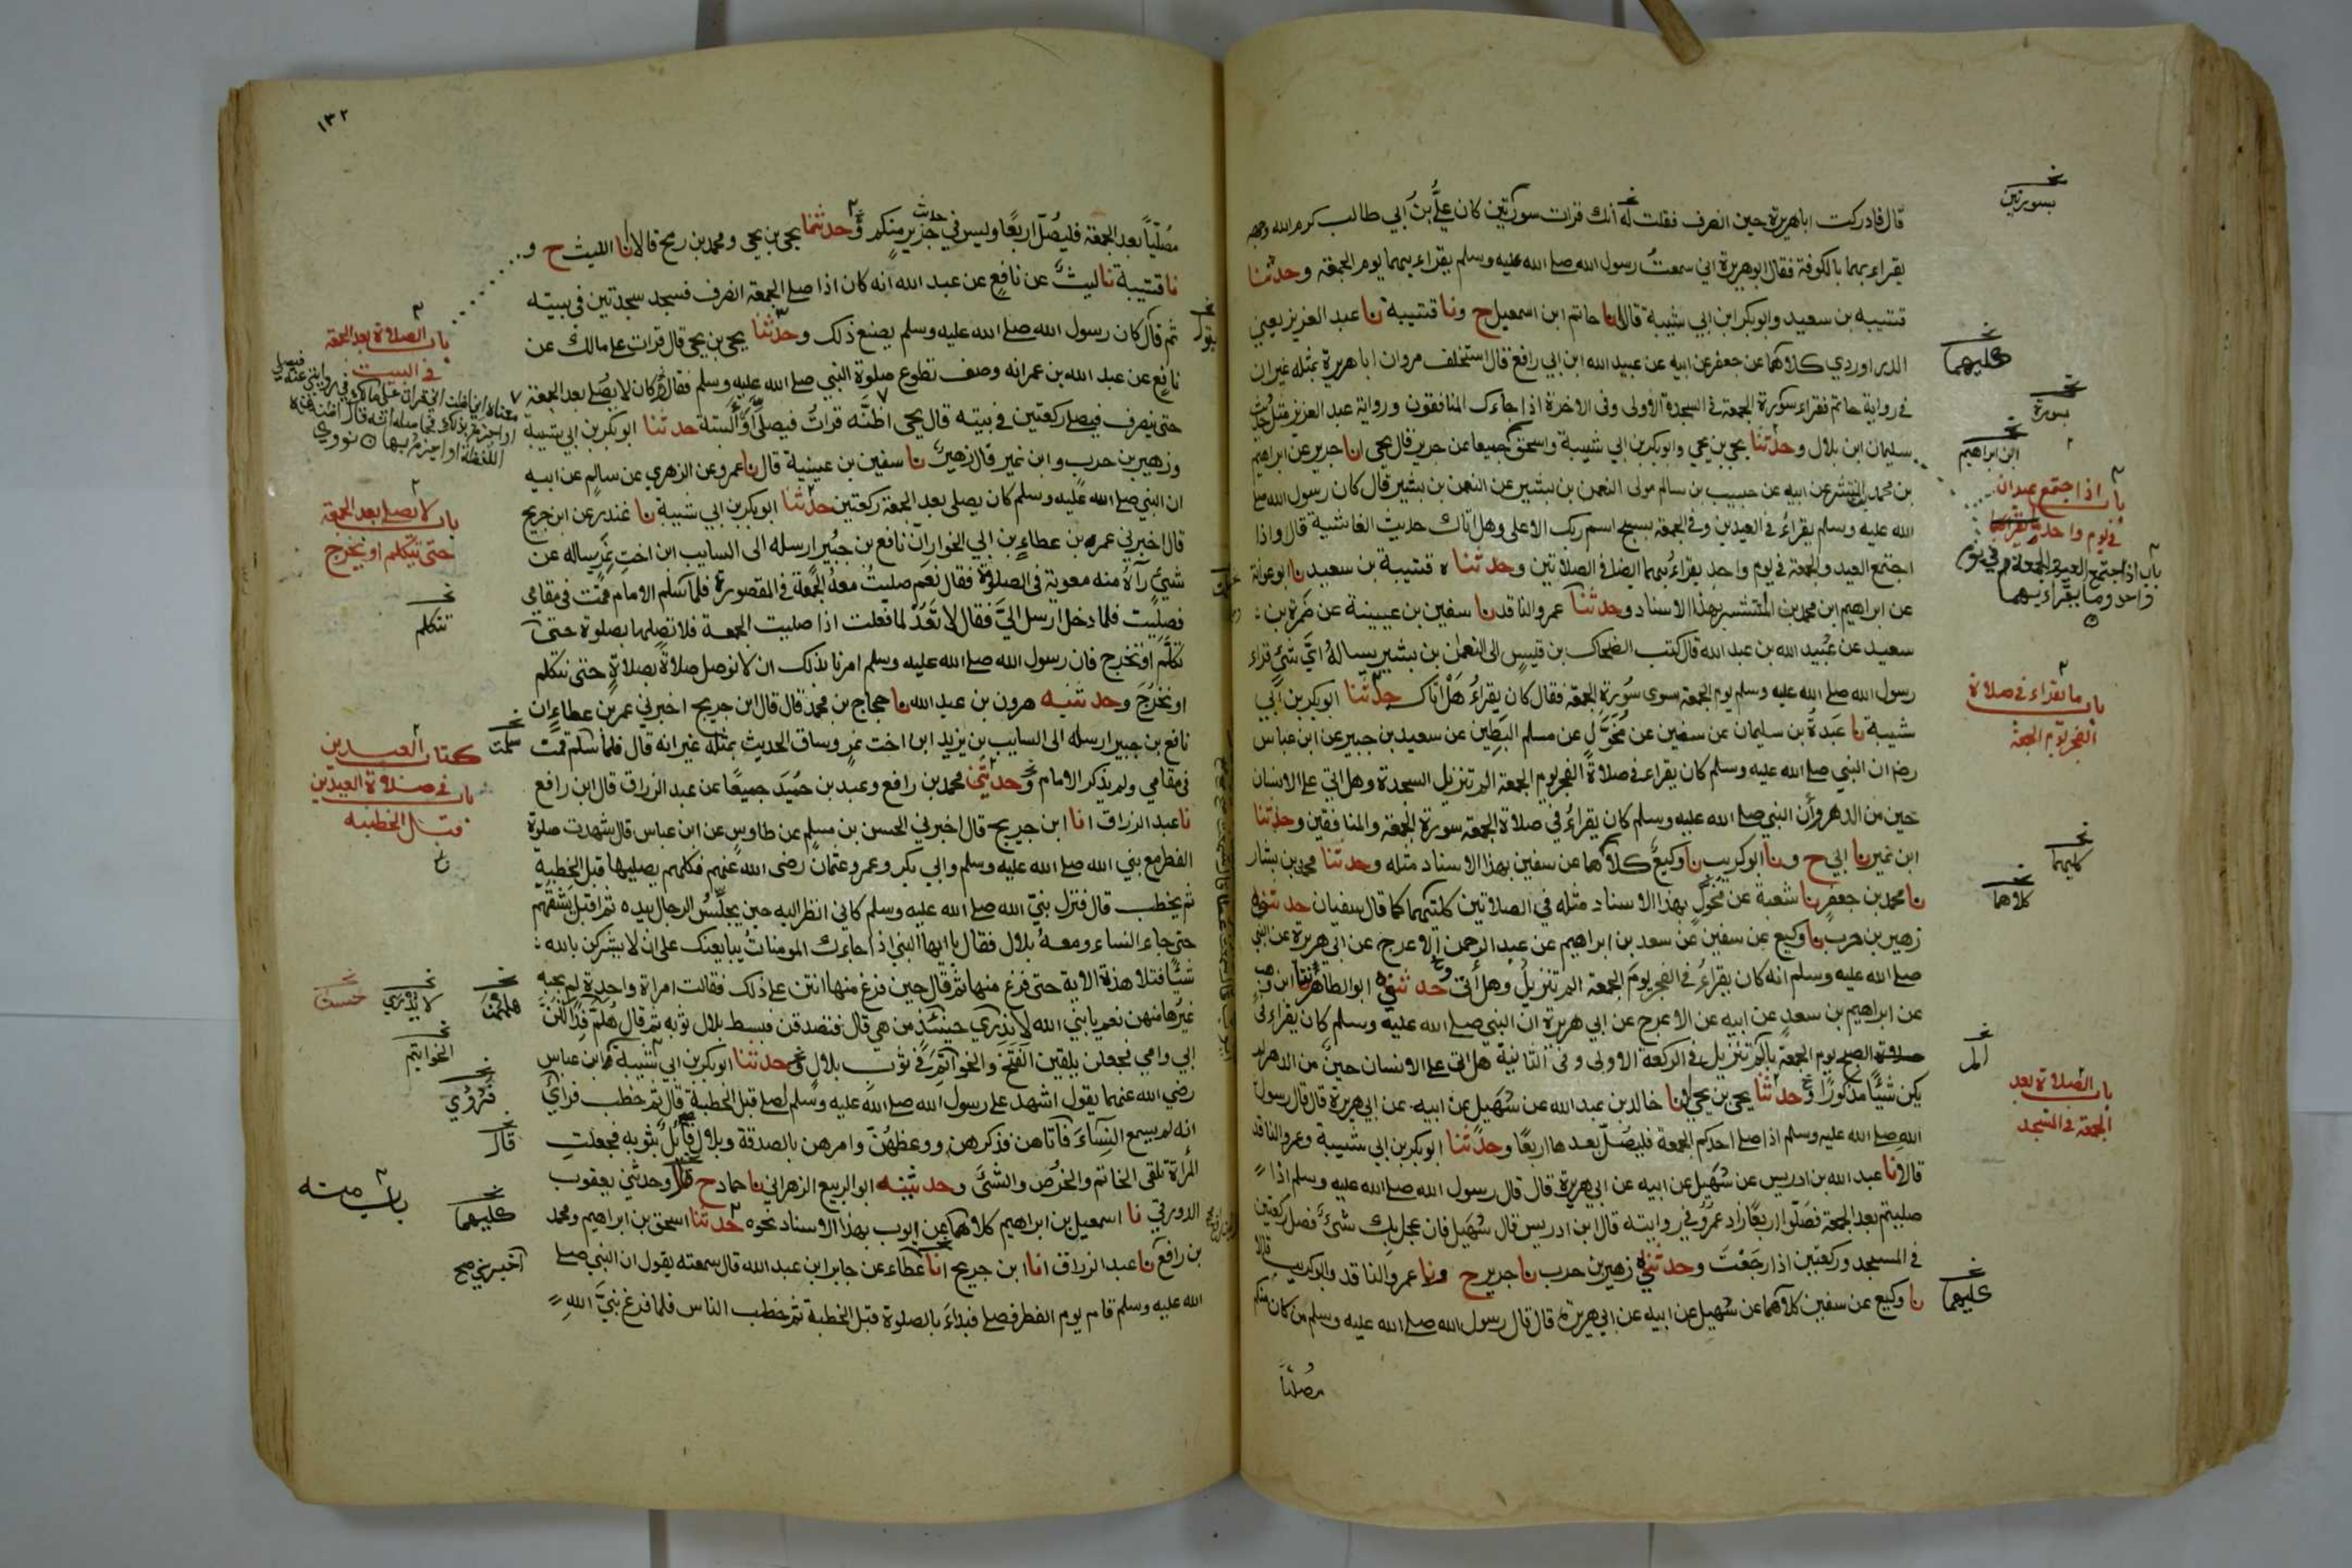 قال فادركت اباهريرة حين انصرف فقلت له انك قرات سورتين كان علي بن ابي طالب كرم الله وجهه
يقراء بهما بالكوفة فقال ابوهريرة اني سمعت رسول الله صلى الله عليه وسلم يقراء بهما يوم الجمعة وحدثنا
قتيبه بن سعيد وابوبكر ابن ابي شيبة قالا نا حاتم ابن اسمعيل ح ونا قتيبة نا عبد العزيز يعني
الدراوردي كلاهما عن جعفر عن ابيه عن عبيد الله ابن ابي رافع قال استخلف مروان اباهريرة بمثله غيران
في رواية حاتم فقراء سورة الجمعة في السجدة الاولى وفى الاخرة اذا جاءك المنافقون ورواية عبد العزيز مثل حديث
سليمان ابن بلال وحدثنا يحيى بن يحيى وابوبكر بن ابي شيبة واسحق جميعا عن جرير قال يحيى انا جرير عن ابراهيم
بن محمد المنتشر عن ابيه عن حبيب بن سالم مولى النعمن بن بشير عن النعمن بن بشير قال كان رسول الله صلى
الله عليه وسلم يقراءُ في العيدين وفي الجمعة بسبح اسم ربك الاعلى وهل اتاك حديث الغاشية قال واذا
اجتمع العيد والجمعة في يوم واحد يقراءبهما ايضا في الصلاتين وحدثناه قتيبة بن سعيد نا ابوعوانة
عن ابراهيم ابن محمد بن المنتشر بهذا الاسناد وحدثنا عمرو الناقد نا سفين بن عيينة عن ضمرة بن
سعيد عن عبيد الله بن عبد الله قال كتب الضحاك بن قيس الى النعمن بن بشير يساله اي شئ قراء
رسول الله صلى الله عليه وسلم يوم الجمعة سوى سورة الجمعة فقال كان يقراءُ هل اتاك حدثنا ابوبكر بن ابي
شيبة نا عبدة بن سليمان عن سفين عن مخول عن مسلم البطين عن سعيد بن جبير عن ابن عباس
رضى ان النبي صلى الله عليه وسلم كان يقراء في صلاة الفجر يوم الجمعة الم تنزيل السجدة وهل اتى على الانسان
حين من الدهر وان النبي صلى الله عليه وسلم كان يقراءُ في صلاة الجمعه سورة الجمعة والمنافقين وحدثنا
ابن نمير نا ابي ح ونا ابوكريب نا وكيع كلاهما عن سفين بهذا الاسناد مثله وحدثنا محمد بن بشار
نا محمد بن جعفر نا شعبة عن مخول بهذا الاسناد مثله في الصلاتين كلتيهما كما قال سفيان حدثني
زهير بن حرب نا وكيع عن سفين عن سعد بن ابراهيم عن عبد الرحمن الاعرج عن ابي هريرة عن النبي
صلى الله عليه وسلم انه كان يقراءُ في الفجر يوم الجمعة الم تنزيل وهل اتى حدثني ابو الطاهر نا ابن وهب
عن ابراهيم بن سعد عن ابيه عن الاعرج عن ابي هريرة ان النبي صلى الله عليه وسلم كان يقراء في
صلوة الصبح يوم الجمعة بالم تنزيل في الركعة الاولى وفى الثانية هل اتى على الانسان حين من الدهر لم
يكن شيئا مذكورا وحدثنا يحيى بن يحيى انا خالد بن عبد الله عن سهيل عن ابيه عن ابي هريرة قال قال رسول
الله صلى الله عليه وسلم اذا صلى احدكم الجمعة فليصل بعدها اربعا وحدثنا ابوبكر بن ابي شيبة وعمرو الناقد
قالا نا عبد الله بن ادريس عن سهيل عن ابيه عن ابي هريرة قال قال رسول الله صلى الله عليه وسلم اذا
صليتم بعد الجمعة فصلوا اربعا زاد عمرو في روايته قال ابن ادريس قال سهيل فان عجل بك شئ فصل ركعتين
في المسجد وركعتين اذا رجعت وحدثني زهير بن حرب نا جرير ح ونا عمرو الناقد وابوكريب قالا
نا وكيع عن سفين كلاهما عن سهيل عن ابيه عن ابي هريرة قال قال رسول الله صلى الله عليه وسلم من كان منكم
مصليا
بسورتين
كليهما
بسورة
ابن ابراهيم
باب اذا اجتمع عيدان
في يوم واحد
باب اذا اجتمع العيد والجمعة في يوم
واحد وما يقراء بهما
باب ما يقراء في صلاة
الفجر يوم الجمعة
كليهما
كلاهما
الم
باب الصلاة بعد
الجمعة في المسجد
كليهما
١٣٢
مصليا بعد الجمعة فليصل اربعا وليس في حديث جرير منكم وحدثنا يحيى بن يحيى ومحمد بن رمح قالا انا الليث ح و
نا قتيبة نا ليث عن نافع عن عبد الله انه كان اذا صلى الجمعة انصرف فسجد سجدتين في بيته
ثم قال كان رسول الله صلى الله عليه وسلم يصنع ذلك وحدثنا يحيى بن يحيى قال قرات على مالك عن
نافع عن عبد الله بن عمر انه وصف تطوع صلوة النبي صلى الله عليه وسلم فقال كان لا يصلى بعد الجمعة
حتى ينصرف فيصلى ركعتين في بيته قال يحيى اظنه قرات فيصلى او البتة حدثنا ابوبكر بن ابي شيبة
وزهير بن حرب وابن نمير قال زهير نا سفين بن عيينة قال نا عمرو عن الزهري عن سالم عن ابيه
ان النبي صلى الله عليه وسلم كان يصلى بعد الجمعة ركعتين حدثنا ابوبكر بن ابي شيبة نا غندر عن ابن جريج
قال اخبرني عمر بن عطاء بن ابي الخوار ان نافع بن جبير ارسله الى السايب ابن اخت نمر يساله عن
شئ رآه منه معوية في الصلاة فقال نعم صليت معه الجمعة في المقصورة فلما سلم الامام قمت في مقامى
فصليت فلما دخل ارسل الي فقال لا تعد لما فعلت اذا صليت الجمعة فلا تصلها بصلوة حتى
تكلم او تخرج فان رسول الله صلى الله عليه وسلم امرنا بذلك ان لا نوصل صلاة بصلاة حتى نتكلم
او نخرج وحدثنيه هرون بن عبد الله نا حجاج بن محمد قال قال ابن جريج اخبرني عمر بن عطاء ان
نافع بن جبير ارسله الى السايب بن يزيد ابن اخت نمر وساق الحديث بمثله غير انه قال فلما سلم قمت
في مقامي ولم يذكر الامام وحدثني محمد بن رافع وعبد بن حميد جميعا عن عبد الرزاق قال ابن رافع
نا عبد الرزاق انا ابن جريج قال اخبرني الحسن بن مسلم عن طاوس عن ابن عباس قال شهدت صلوة
الفطر مع نبي الله صلى الله عليه وسلم وابي بكر وعمر وعثمان رضى الله عنهم فكلهم يصليها قبل الخطبة
ثم يخطب قال فنزل نبي الله صلى الله عليه وسلم كاني انظر اليه حين يجلس الرجال بيده ثم اقبل يشقهم
حتى جاء النساء ومعه بلال فقال يا ايها النبي اذا جاءك المومنات يبايعنك على ان لا يشركن بالله
شيئا فتلا هذه الاية حتى فرغ منها ثم قال حين فرغ منها انتن على ذلك فقالت امراة واحدة لم يجبه
غيرها منهن نعم يا نبي الله لا يدري حينئذ من هي قال فتصدقن فبسط بلال ثوبه ثم قال هلم فدا لكن
ابي وامي فجعلن يلقين الفتخ والخواتم في ثوب بلال وحدثنا ابوبكر بن ابي شيبة ابن عباس
رضى الله عنهما يقول اشهد على رسول الله صلى الله عليه وسلم لصلى قبل الخطبة قال ثم خطب فراى
انه لم يسمع النساء فاتاهن فذكرهن ووعظهن وامرهن بالصدقة وبلال قابل بثوبه فجعلت
المراة تلقى الخاتم والخرص والشئ وحدثنيه ابو الربيع الزهراني نا حماد ح قال وحدثني يعقوب
الدورقي نا اسمعيل بن ابراهيم كلاهما عن ايوب بهذا الاسناد نحوه حدثنا اسحق بن ابراهيم ومحمد
بن رافع نا عبد الرزاق انا ابن جريج انا عطاء عن جابر ابن عبد الله قال سمعته يقول ان النبي صلى
الله عليه وسلم قام يوم الفطر فصلى فبداء بالصلوة قبل الخطبة ثم خطب الناس فلما فرغ نبي الله
باب الصلاة بعد الجمعة
في البيت
باب لا يصلى بعد الجمعة
حتى يتكلم او يخرج
نتكلم
سلمت
كتاب العيدين
باب في صلاة العيدين
قبل الخطبة
لا يدري
حسن
الخواتيم
فرؤي
قال
باب منه
كليهما
اخبرني صح